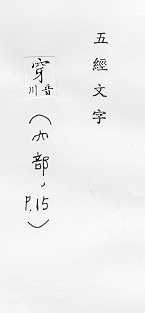 五經文字
穿
音
川
（穴部，P.15）